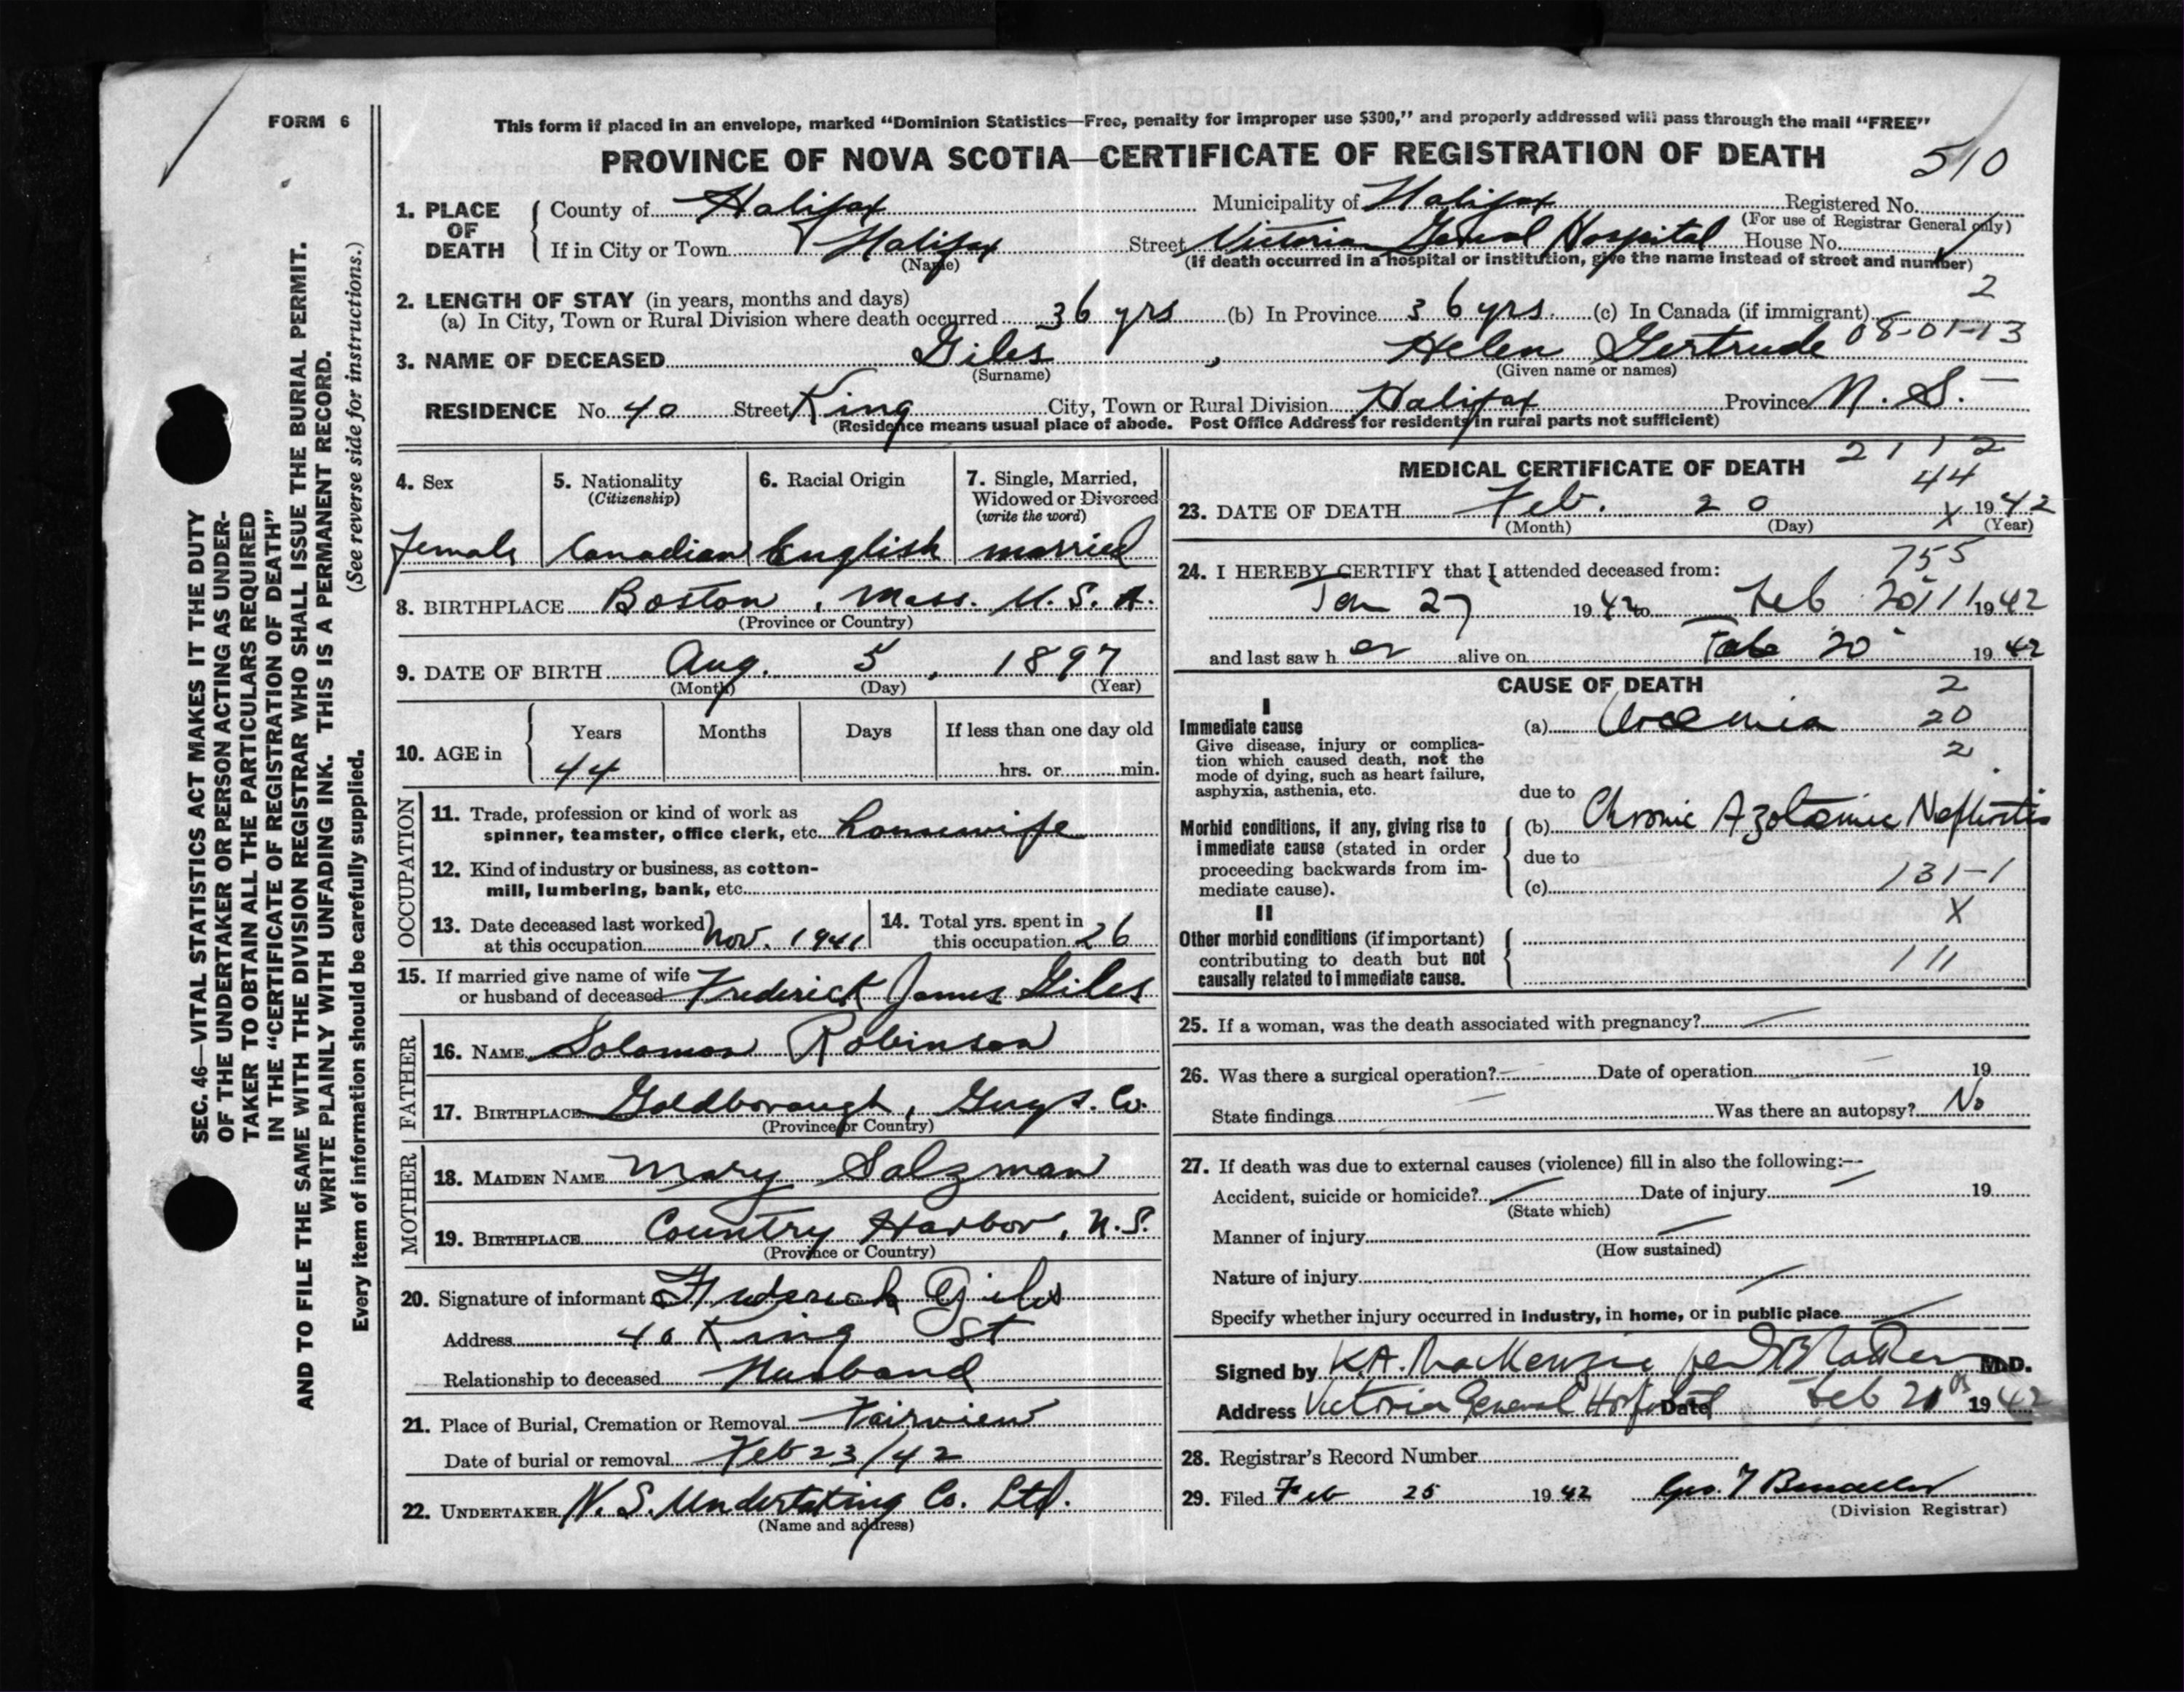 FORM 6
This form if placed in an envelope, marked “Dominion Statistics—Free, penalty for improper use $300,” and properly addressed will pass through the mail “FREE”
PROVINCE OF NOVA SCOTIA—CERTIFICATE OF REGISTRATION OF DEATH
510
1. PLACE OF DEATH
County of Halifax Municipality of Halifax Registered No.
(For use of Registrar General only)
If in City or Town Halifax Street Victoria General Hospital House No.
(Name) (If death occurred in a hospital or institution, give the name instead of street and number)
2. LENGTH OF STAY (in years, months and days) 2
(a) In City, Town or Rural Division where death occurred 36 yrs (b) In Province 36 yrs. (c) In Canada (if immigrant)
3. NAME OF DECEASED Giles, Helen Gertrude 08-01-13
(Surname) (Given name or names)
RESIDENCE No. 40 Street King City, Town or Rural Division Halifax Province N. S. —
(Residence means usual place of abode. Post Office Address for residents in rural parts not sufficient)
4. Sex
female
5. Nationality
(Citizenship)
Canadian
6. Racial Origin
English
7. Single, Married,
Widowed or Divorced
(write the word)
married
8. BIRTHPLACE Boston, Mass. U. S. A.
(Province or Country)
9. DATE OF BIRTH Aug. 5, 1897
(Month) (Day) (Year)
10. AGE in
Years Months Days If less than one day old
44 hrs. or min.
OCCUPATION
11. Trade, profession or kind of work as
spinner, teamster, office clerk, etc. housewife
12. Kind of industry or business, as cotton-
mill, lumbering, bank, etc.
13. Date deceased last worked
at this occupation Nov. 1941
14. Total yrs. spent in
this occupation 26
15. If married give name of wife
or husband of deceased Frederick James Giles
FATHER
16. NAME Solomon Robinson
17. BIRTHPLACE Goldborough, Guys. Co.
(Province or Country)
MOTHER
18. MAIDEN NAME Mary Salzman
19. BIRTHPLACE Country Harbor, N.S.
(Province or Country)
20. Signature of informant Frederick Giles
Address 40 King St
Relationship to deceased Husband
21. Place of Burial, Cremation or Removal Fairview
Date of burial or removal Feb 23/42
22. UNDERTAKER N. S. Undertaking Co. Ltd.
(Name and address)
MEDICAL CERTIFICATE OF DEATH
2112
44
23. DATE OF DEATH Feb. 20 X 1942
(Month) (Day) (Year)
755
24. I HEREBY CERTIFY that I attended deceased from:
Jan 27 1942 to Feb 20 1942
and last saw her alive on Feb 20 1942
CAUSE OF DEATH
2
I
Immediate cause
Give disease, injury or complica-
tion which caused death, not the
mode of dying, such as heart failure,
asphyxia, asthenia, etc.
(a) Uraemia 20
2
due to
Morbid conditions, if any, giving rise to
immediate cause (stated in order
proceeding backwards from im-
mediate cause).
(b) Chronic Azotemic Nephritis
due to
(c) 131-1
X
II
Other morbid conditions (if important)
contributing to death but not
causally related to immediate cause.
111
25. If a woman, was the death associated with pregnancy? —
26. Was there a surgical operation? — Date of operation — 19
State findings — Was there an autopsy? No
27. If death was due to external causes (violence) fill in also the following:—
Accident, suicide or homicide? — Date of injury — 19
(State which)
Manner of injury —
(How sustained)
Nature of injury —
Specify whether injury occurred in industry, in home, or in public place —
Signed by K.A. MacKenzie per M.D.
Address Victoria General Hospital Date Feb 1942
28. Registrar's Record Number
29. Filed Feb 25 1942 Geo. F
(Division Registrar)
SEC. 46—VITAL STATISTICS ACT MAKES IT THE DUTY
OF THE UNDERTAKER OR PERSON ACTING AS UNDER-
TAKER TO OBTAIN ALL THE PARTICULARS REQUIRED
IN THE “CERTIFICATE OF REGISTRATION OF DEATH”
AND TO FILE THE SAME WITH THE DIVISION REGISTRAR WHO SHALL ISSUE THE BURIAL PERMIT.
WRITE PLAINLY WITH UNFADING INK. THIS IS A PERMANENT RECORD.
Every item of information should be carefully supplied. (See reverse side for instructions.)